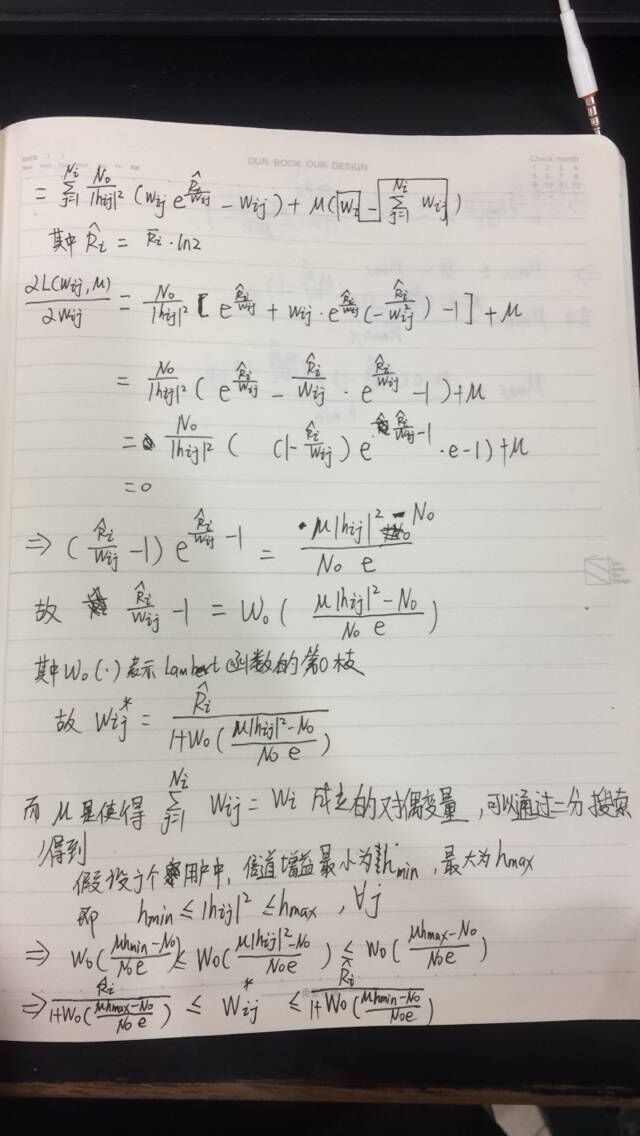 DATE
OUR BOOK, OUR DESIGN
Check month
1 2 3 4
5 6 7 8
9 10 11 12
= \sum_{j=1}^{N_i} \frac{N_0}{|h_{ij}|^2} (w_{ij} e^{\frac{\hat{R}_i}{w_{ij}}} - w_{ij}) + μ(W_i - \sum_{j=1}^{N_i} w_{ij})
其中 \hat{R}_i = \bar{R}_i · ln2
\frac{∂L(w_{ij}, μ)}{∂w_{ij}} = \frac{N_0}{|h_{ij}|^2} [ e^{\frac{\hat{R}_i}{w_{ij}}} + w_{ij} · e^{\frac{\hat{R}_i}{w_{ij}}} (-\frac{\hat{R}_i}{w_{ij}^2}) - 1 ] + μ
= \frac{N_0}{|h_{ij}|^2} ( e^{\frac{\hat{R}_i}{w_{ij}}} - \frac{\hat{R}_i}{w_{ij}} · e^{\frac{\hat{R}_i}{w_{ij}}} - 1 ) + μ
= \frac{N_0}{|h_{ij}|^2} ( (1 - \frac{\hat{R}_i}{w_{ij}}) e^{\frac{\hat{R}_i}{w_{ij}} - 1} · e - 1 ) + μ
= 0
⇒ (\frac{\hat{R}_i}{w_{ij}} - 1) e^{\frac{\hat{R}_i}{w_{ij}} - 1} = \frac{μ|h_{ij}|^2 - N_0}{N_0 e}
故 \frac{\hat{R}_i}{w_{ij}} - 1 = W_0 ( \frac{μ|h_{ij}|^2 - N_0}{N_0 e} )
其中 W_0(·) 表示 Lambert 函数的第0枝
故 w_{ij}^* = \frac{\hat{R}_i}{1 + W_0(\frac{μ|h_{ij}|^2 - N_0}{N_0 e})}
而 μ 是使得 \sum_{j=1}^{N_i} w_{ij} = W_i 成立的对偶变量，可以通过二分搜索
得到
假设个用户中，信道增益最小为 h_{min}，最大为 h_{max}
即 h_{min} ≤ |h_{ij}|^2 ≤ h_{max}, ∀j
⇒ W_0(\frac{μh_{min} - N_0}{N_0 e}) ≤ W_0(\frac{μ|h_{ij}|^2 - N_0}{N_0 e}) ≤ W_0(\frac{μh_{max} - N_0}{N_0 e})
⇒ \frac{\hat{R}_i}{1 + W_0(\frac{μh_{max} - N_0}{N_0 e})} ≤ w_{ij}^* ≤ \frac{\hat{R}_i}{1 + W_0(\frac{μh_{min} - N_0}{N_0 e})}